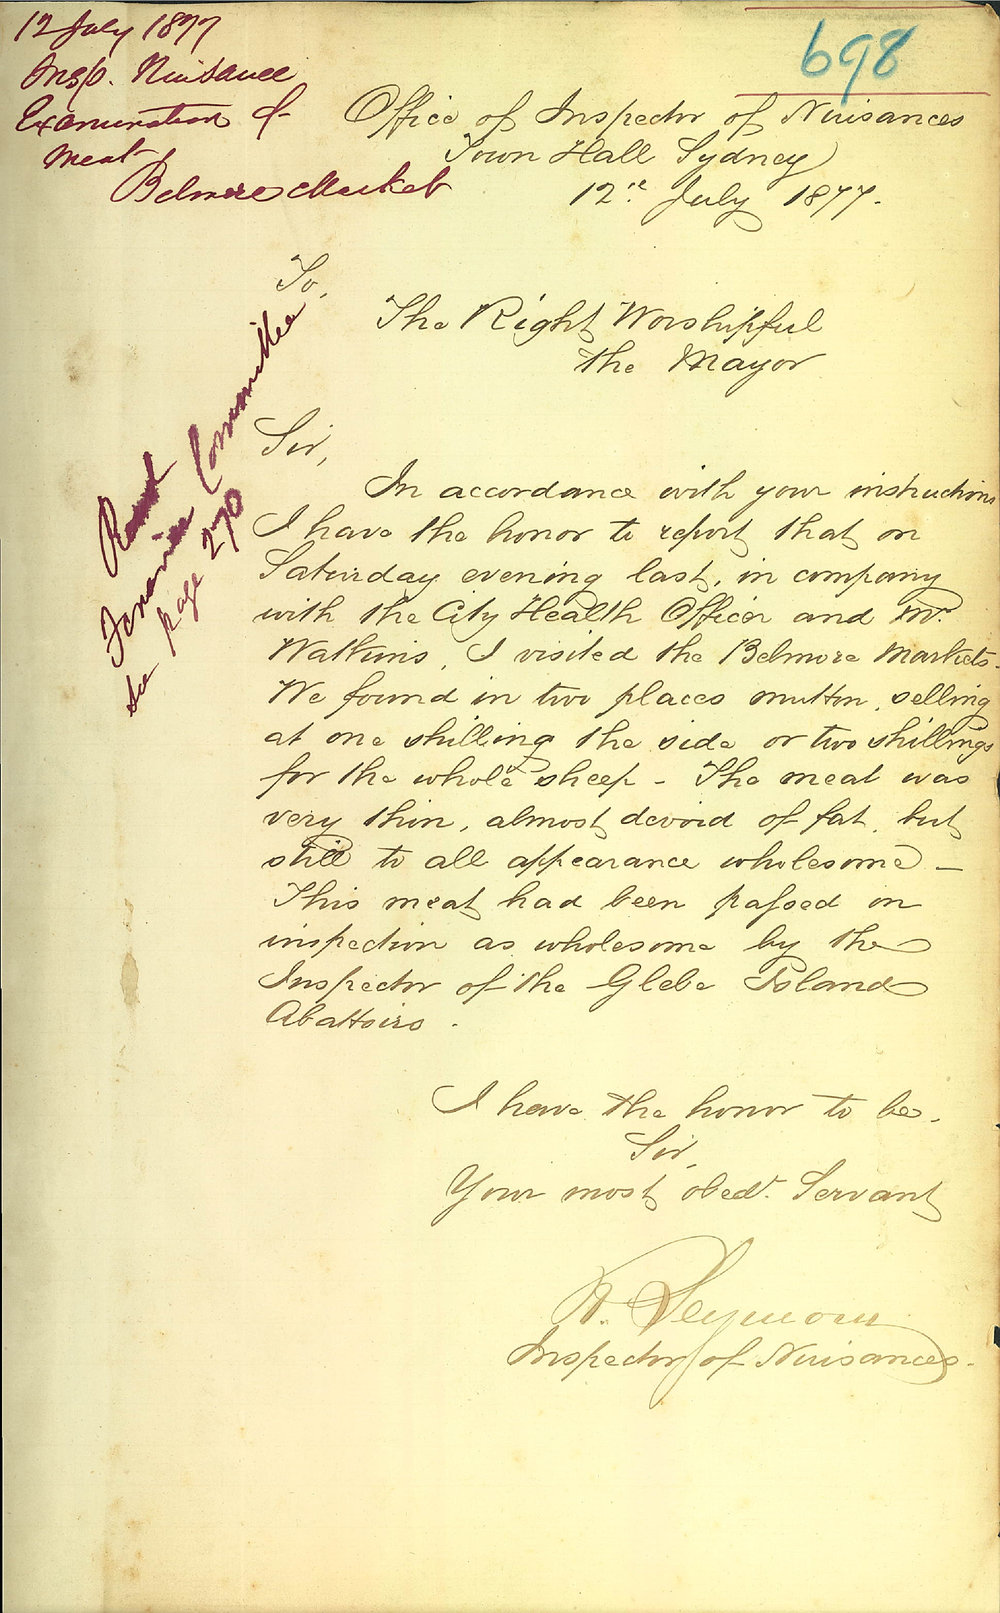 12 July 1877
Insp. Nuisance
Examination of
meat
Belmore Market
698
Office of Inspector of Nuisances
Town Hall Sydney
12th July 1877.
To,
The Right Worshipful
the Mayor
Read
Committee
see page 270
Sir,
In accordance with your instructions
I have the honor to report that on
Saturday evening last, in company
with the City Health Officer and Mr.
Watkins, I visited the Belmore Markets.
We found in two places mutton, selling
at one shilling the side or two shillings
for the whole sheep - The meat was
very thin, almost devoid of fat, but
still to all appearance wholesome -
This meat had been passed on
inspection as wholesome by the
Inspector of the Glebe Island
Abattoirs.
I have the honor to be,
Sir,
Your most obedt. Servant
R. Seymour
Inspector of Nuisances.